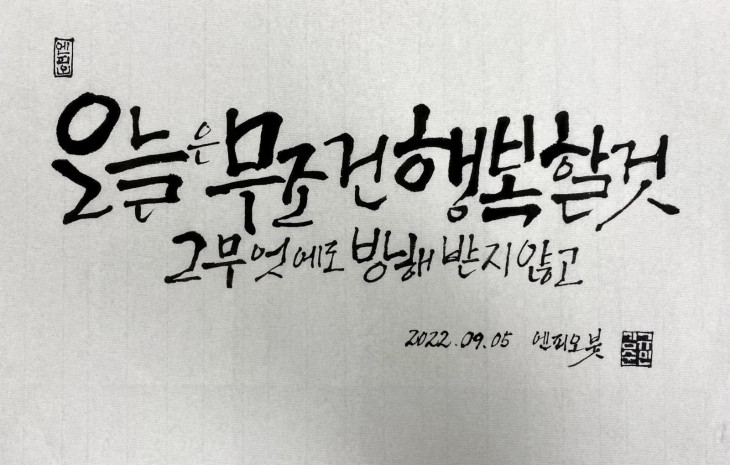 오늘은 무조건 행복할것
그 무엇에도 방해 받지 않고
2022.09.05 엔피오붓